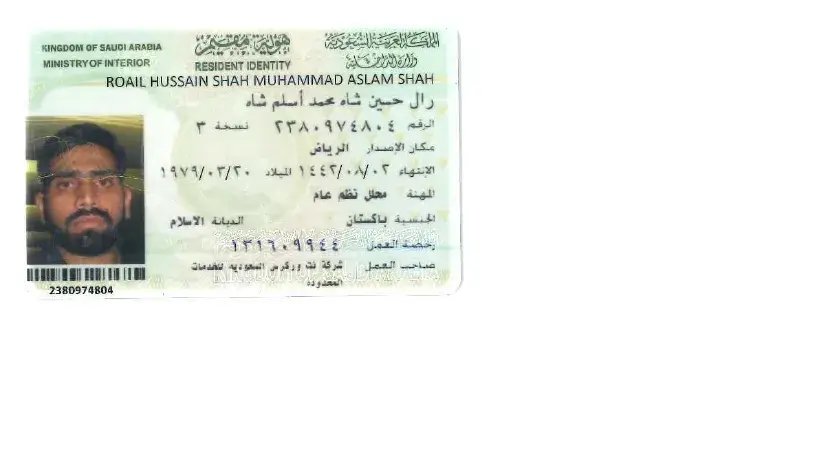 KINGDOM OF SAUDI ARABIA
المملكة العربية السعودية
MINISTRY OF INTERIOR
وزارة الداخلية
هوية مقيم
RESIDENT IDENTITY
ROAIL HUSSAIN SHAH MUHAMMAD ASLAM SHAH
رال حسين شاه محمد أسلم شاه
الرقم ٢٣٨٠٩٧٤٨٠٤ نسخة ٣
مكان الإصدار الرياض
الإنتهاء ١٤٤٢/٠٨/٠٢ الميلاد ١٩٧٩/٠٣/٢٠
المهنة محلل نظم عام
الجنسية باكستان الديانة الاسلام
رخصة العمل ١٣١٦٠٩٩٤٤
صاحب العمل شركة نت وركرس السعوديه للخدمات
المحدوده
2380974804